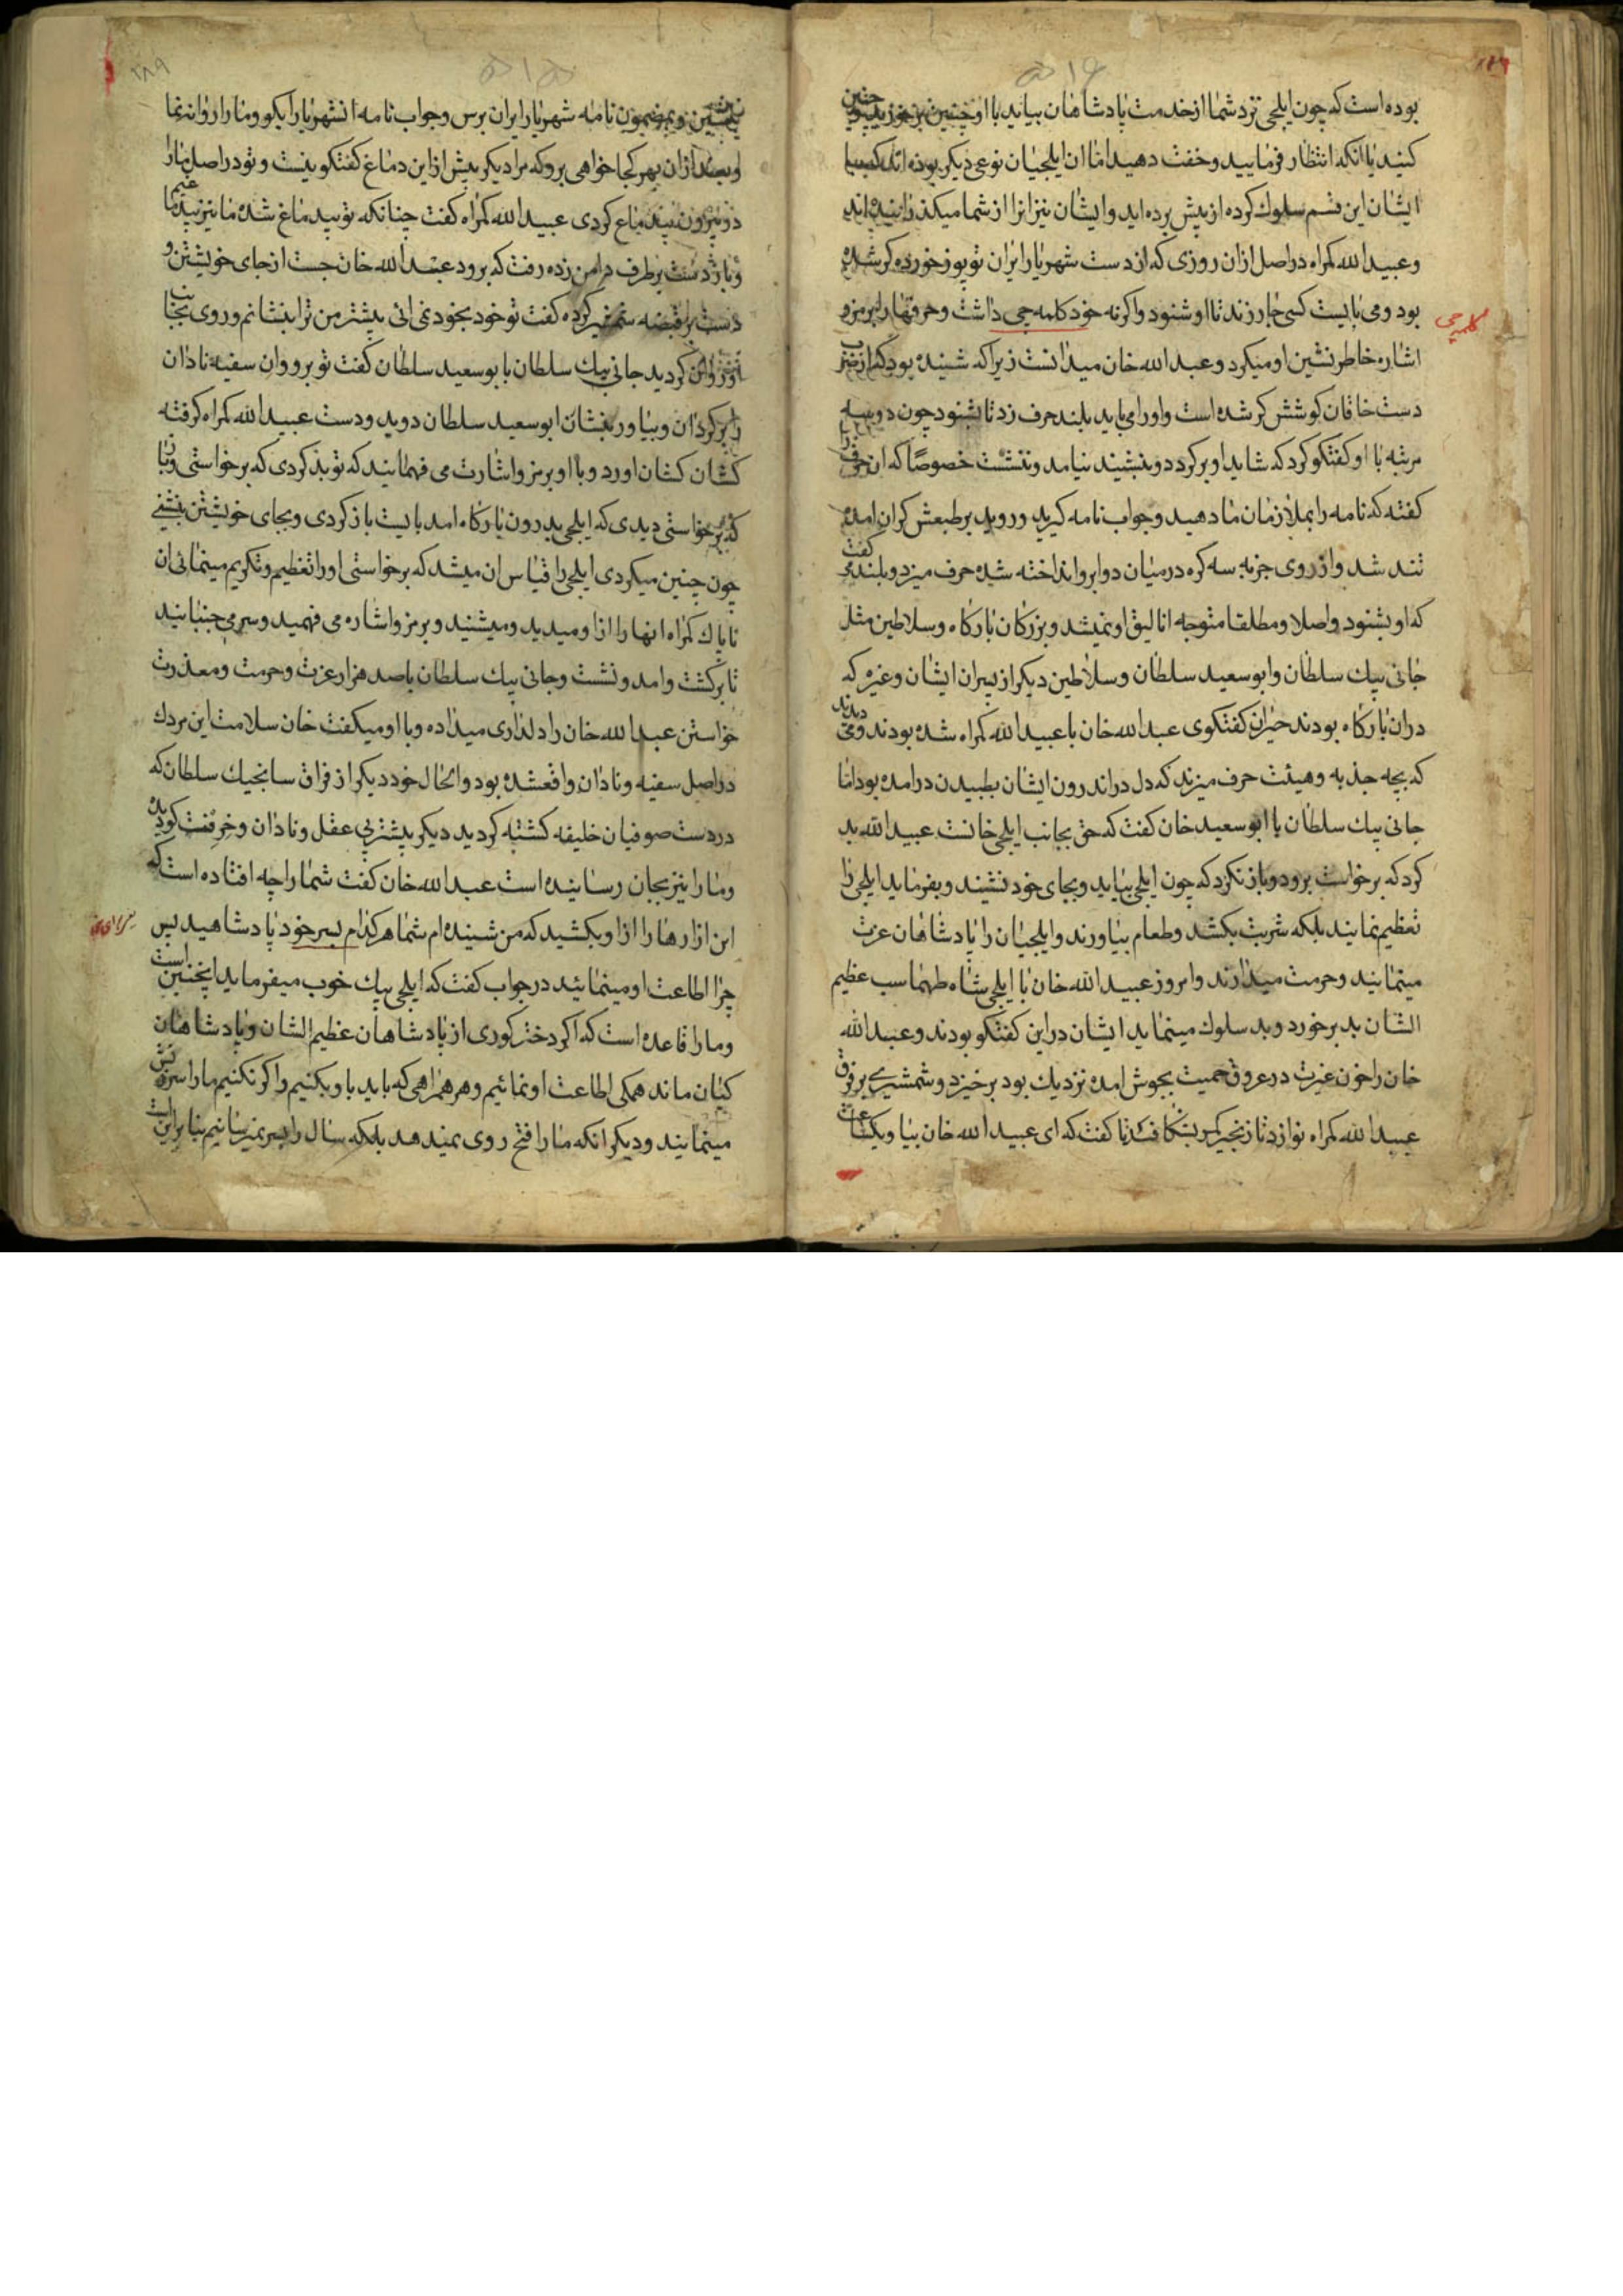 بوده است که چون ایلچی نزد شما از خدمت پادشاهان بیاید با او چنین برخورید چنین
کنید یا انکه انتظار فرمایید وخفت دهید اما ان ایلچیان نوعی دیکر بوده اند که با
ایشان این قسم سلوک کرده از پیش برده اید وایشان نیز انرا از شما میکذرانیده اند
وعبیدالله کمراه در اصل ازان روزی که از دست شهریار ایران توپوز خورده کر شده
بود ومی بایست کسی جار زند تا او شنود واکرنه خود کلمه چی داشت وحرفها را برمز و
کلمه چی
اشاره خاطر نشین او میکرد وعبدالله خان میدانست زیرا که شنیده بود که از ضرب
دست خاقان کوشش کر شده است واورا می باید بلند حرف زد تا بشنود چون دو سه
مرتبه با او کفتکو کرد که شاید او برکردد وبنشیند نیامد وننشست خصوصًا که ان حرف را
کفته که نامه را بملازمان ما دهید وجواب نامه کیرید وروید بر طبعش کران امده
تند شد واز روی جزبه سه کره در میان دو ابرو انداخته شیده حرف میزد وبلند می کفت
که او بشنود واصلا ومطلقا متوجه اتالیق او نمیشد وبزرکان بارکاه وسلاطین مثل
جانی بیک سلطان وابوسعید سلطان وسلاطین دیکر از پیران ایشان وغیره که
دران بارکاه بودند حیران کفتکوی عبدالله خان با عبیدالله کمراه شده بودند ومی دیدند
که بچه جذبه وهیئت حرف میزند که دل در اندرون ایشان بطپیدن درامده بود اما
جانی بیک سلطان با ابوسعید خان کفت که حق بجانب ایلچی خانست عبیدالله بد
کرد که برخواست برود وباز نکرد که چون ایلچی بیاید وبجای خود نشیند وبفرماید ایلچی را
تعظیم نمایند بلکه شربت بکشد وطعام بیاورند وایلچیان را پادشاهان عزت
مینمایند وحرمت میدارند وامروز عبیدالله خان با ایلچی شاه طهماسب عظیم
الشان بد برخورد وبد سلوک مینماید ایشان در این کفتکو بودند وعبدالله
خان را خون غیرت در عروق حمیت بجوش امده نزدیک بود برخیزد وشمشیری بر فرق
عبیدالله کمراه نوازد تا زنجیر کمر بشکافد تا کفت که ای عبیدالله خان بیا ویکساعت
بنشین وبمضمون نامه شهریار ایران برس وجواب نامه انشهریار را بکو ومارا روانه نما
وبعد ازان بهر کجا خواهی برو که مرا دیکر بیش از این دماغ کفتکو نیست وتو در اصل مارا
در بیرون بیدماغ کردی عبیدالله کمراه کفت چنانکه تو بیدماغ شده ما نیز بیدماغیم
وباز دست بر طرف دامن زده رفت که برود عبدالله خان جست از جای خویشتن و
دست بر قبضه شمشیر کرده کفت تو خود بخود نمی ائی بیشتر من ترا بنشانم وروی بجانب
او روان کردید جانی بیک سلطان با بوسعید سلطان کفت تو برو وان سفیه نادان
را برکردان وبیاور بنشان ابوسعید سلطان دوید ودست عبیدالله کمراه کرفته
کشان کشان اورد وبا او برمز واشارت می فهمانید که تو بد کردی که برخواستی وباز
که برخواستی دیدی که ایلچی بدرون بارکاه امد بایست باز کردی وبجای خویشتن بنشینی
چون چنین میکردی ایلچی را قیاس ان میشد که برخواستی اورا تعظیم وتکریم مینمائی ان
ناپاک کمراه انها را ازا ومیدید ومیشنید وبرمز واشاره می فهمید وسر می جنبانید
تا برکشت وامد ونشست وجانی بیک سلطان با صد هزار عزت وحرمت ومعذرت
خواستن عبدالله خان را دلداری میداده وبا او میکفت خان سلامت این مردک
در اصل سفیه ونادان واقعشده بود والحال خود دیکر از فراق سانجیک سلطان که
در دست صوفیان خلیفه کشته کردید دیکر بیشتر بی عقل ونادان وخرفت کردیده
ومارا نیز بجان رسانیده است عبدالله خان کفت شما را چه افتاده است که
این ازارها را ازا وبکشید که من شنیده ام شما هر کدام بسر خود پادشاهید پس
چرا اطاعت او مینمائید در جواب کفت که ایلچی بیک خوب میفرماید اینچنین است
ومارا قاعده است که اکر دختر کوری از پادشاهان عظیم الشان وپادشاهان
کیان ماند همکی اطاعت او نمائیم وهر همراهی که باید با وبکنیم واکر نکنیم مارا سرزنش
مینمایند ودیکر انکه مارا فتح روی نمیدهد بلکه سال را بسر نمیرسانیم بنابراین است